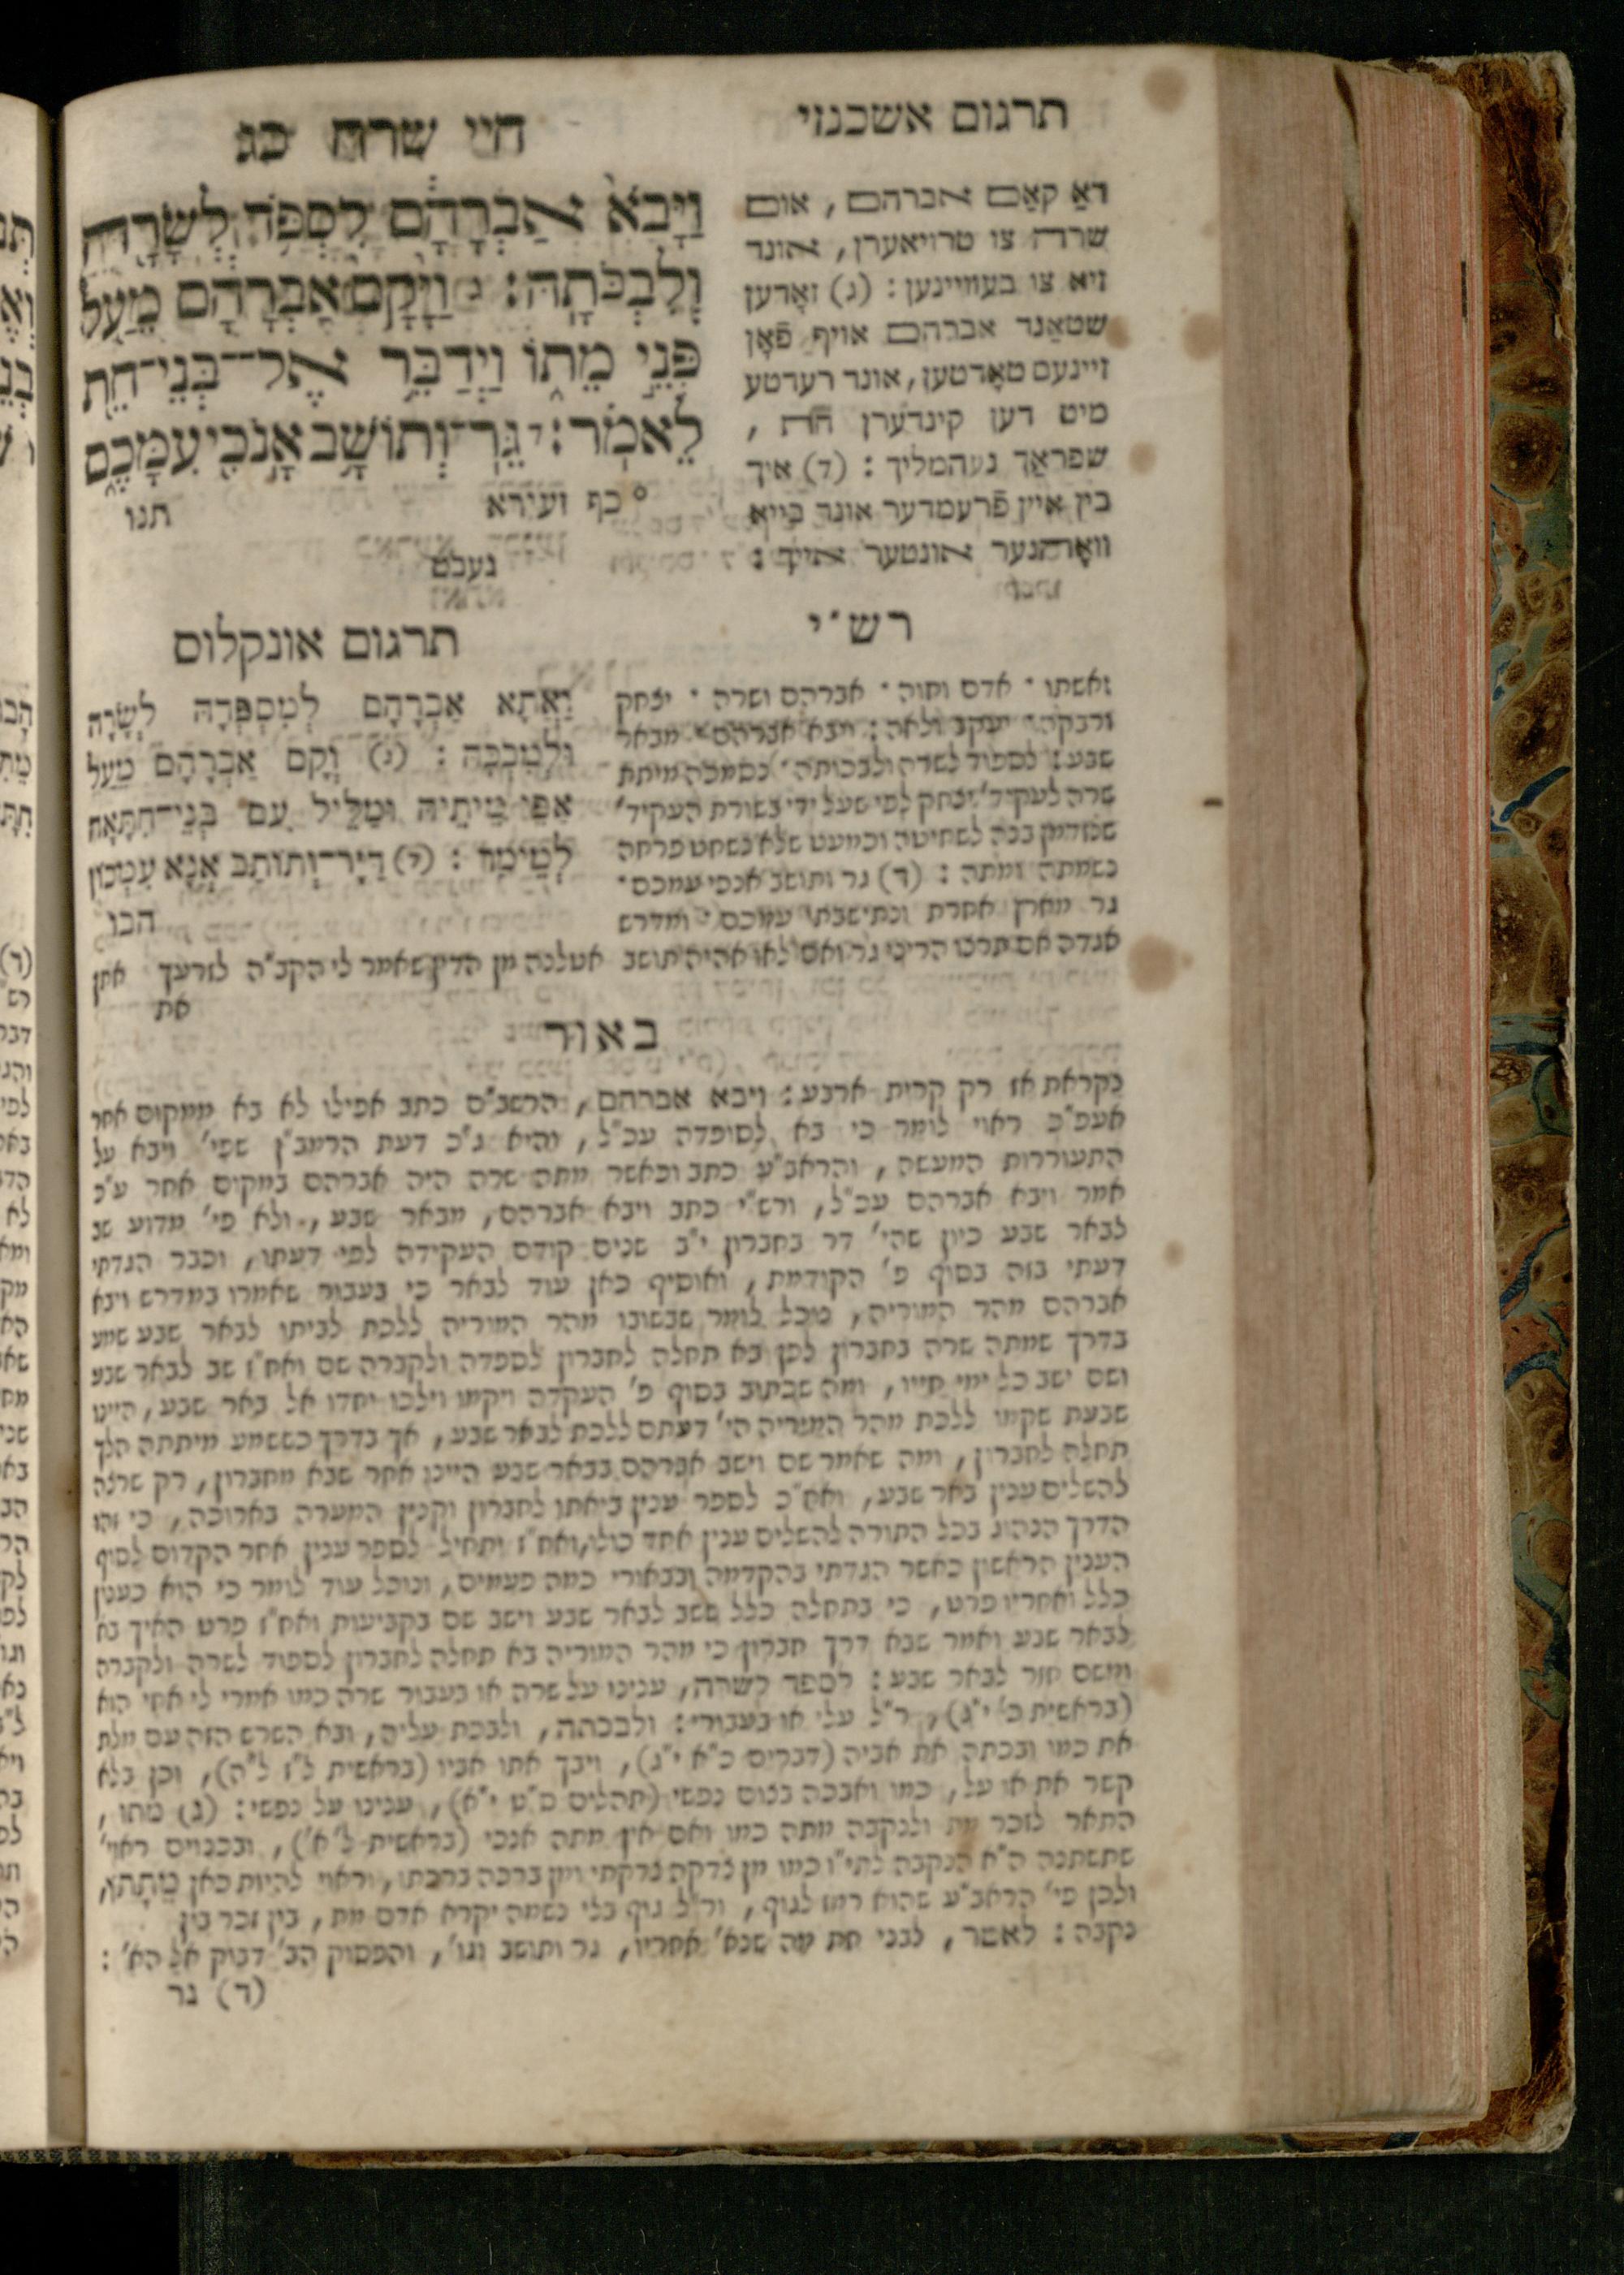 תרגום אשכנזי
חיי שרה כג
דאַ קאַם אברהם, אום
שרה צו טרויאערן, אונד
זיא צו בעוויינען: (ג) זאָדען
שטאַנד אברהם אויף פֿאָן
זיינעם טאָדטען, אונד רעדטע
מיט דען קינדערן חת,
שפראַך נעהמליך: (ד) איך
בין איין פֿרעמדער אונד בייא
וואָהנער אונטער אייך:
וַיָּבֹא אַבְרָהָם לִסְפֹּד לְשָׂרָה
וְלִבְכֹּתָהּ: ג וַיָּקָם אַבְרָהָם מֵעַל
פְּנֵי מֵתוֹ וַיְדַבֵּר אֶל־בְּנֵי־חֵת
לֵאמֹר: ד גֵּר־וְתוֹשָׁב אָנֹכִי עִמָּכֶם
° כף זעירא
תנו
רש"י
ואשתו · אדם וחוה · אברהם ושרה · יצחק
ורבקה · יעקב ולאה: ויבא אברהם · מבאר
שבע: לספוד לשרה ולבכותה · נסמכה מיתת
שרה לעקיד' יצחק לפי שעל ידי בשורת העקיד'
שנזדמן בנה לשחיטה וכמעט שלא נשחט פרחה
נשמתה ומתה: (ד) גר ותושב אנכי עמכם ·
גר מארץ אחרת ונתישבתי עמכם · ומדרש
אגדה אם תרצו הריני גר ואם לאו אהיה תושב אטלנה מן הדין שאמר לי הקב"ה לזרעך אתן
את
תרגום אונקלוס
וַאֲתָא אַבְרָהָם לְמִסְפְּדָהּ לְשָׂרָה
וּלְמִבְכָּהּ: (ג) וְקָם אַבְרָהָם מֵעַל
אַפֵּי מִיתֵיהּ וּמַלֵּיל עִם בְּנֵי־חִתָּאָה
לְמֵימָר: (ד) דַּיָּר־וְתוֹתָב אֲנָא עִמְּכוֹן
הבו
באור
נקראת אז רק קרית ארבע: ויבא אברהם, הרשב"ם כתב אפילו לא בא ממקום אחר
אעפ"כ ראוי לומר כי בא לסופדה עכ"ל, והיא ג"כ דעת הרמב"ן שפי' ויבא על
התעוררות המעשה, והראב"ע כתב וכאשר מתה שרה היה אברהם במקום אחר ע"כ
אמר ויבא אברהם עכ"ל, ורש"י כתב ויבא אברהם, מבאר שבע, ולא פי' מדוע שב
לבאר שבע כיון שהי' דר בחברון י"ב שנים קודם העקידה לפי דעתו, וכבר הגדתי
דעתי בזה בסוף פ' הקודמת, ואוסיף כאן עוד לבאר כי בעבור שאמרו במדרש ויבא
אברהם מהר המוריה, נוכל לומר שבשובו מהר המוריה ללכת לביתו לבאר שבע שמע
בדרך שמתה שרה בחברון לכן בא תחלה לחברון לספדה ולקברה שם ואח"ז שב לבאר שבע
ושם ישב כל ימי חייו, ומה שכתוב בסוף פ' העקדה ויקמו וילכו יחדו אל באר שבע, היינו
שבעת שקמו ללכת מהר המוריה הי' דעתם ללכת לבאר שבע, אך בדרך כששמע מיתתה הלך
תחלה לחברון, ומה שאמר שם וישב אברהם בבאר שבע היינו אחר שבא מחברון, רק שרצה
להשלים ענין באר שבע, ואח"כ לספר ענין ביאתו לחברון וקנין המערה בארוכה, כי זהו
הדרך הנהוג בכל התורה להשלים ענין אחד כולו, ואח"ז יתחיל לספר ענין אחר הקדום לסוף
הענין הראשון כאשר הגדתי בהקדמה ובבאורי כמה פעמים, ונוכל עוד לומר כי הוא כענין
כלל ואחריו פרט, כי בתחלה כלל ששב לבאר שבע וישב שם בקביעות ואח"ז פרט האיך בא
לבאר שבע ואמר שבא דרך חברון כי מהר המוריה בא תחלה לחברון לספוד לשרה ולקברה
ומשם חזר לבאר שבע: לספד לשרה, ענינו על שרה או בעבור שרה כמו אמרי לי אחי הוא
(בראשית כ' י"ג), ר"ל עלי או בעבורי: ולבכתה, ולבכת עליה, ובא השרש הזה עם מלת
את כמו ובכתה את אביה (דברים כ"א י"ג), ויבך אתו אביו (בראשית ל"ז ל"ה), וכן בלא
קשר את או על, כמו ואבכה בצום נפשי (תהלים ס"ט י"א), ענינו על נפשי: (ג) מתו,
התאר לזכר מת ולנקבה מתה כמו ואם אין מתה אנכי (בראשית ל' א'), ובכנוים ראוי
שתשתנה ה"א הנקבה לתי"ו כמו מן צדקה צדקתי ומן ברכה ברכתו, וראוי להיות כאן מֵתָתוֹ,
ולכן פי' הראב"ע שהוא רמז לגוף, ור"ל גוף בלי נשמה יקרא אדם מת, בין זכר בין
נקבה: לאמר, לבני חת מה שנא' אחריו, גר ותושב וגו', והפסוק הב' דבוק אל הא':
(ד) גר